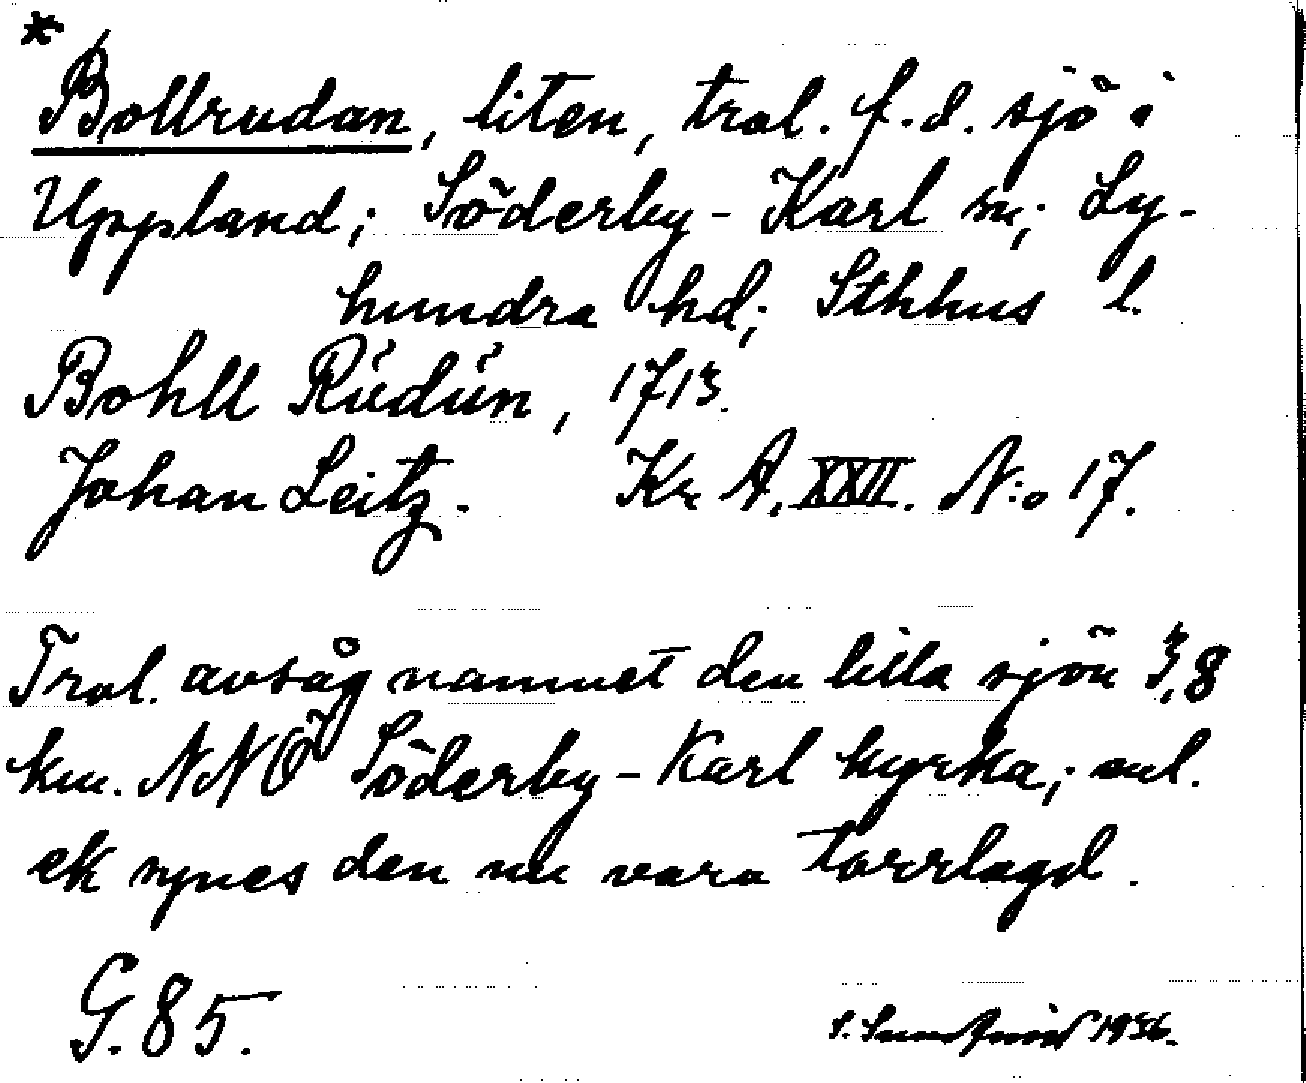 *
Bollrudan, liten, trol. f.d. sjö i
Uppland; Söderby-Karl sn; Ly-
hundra hd; Sthhus l.
Bohll Rúdún, 1713.
Johan Leitz. Kr A. XXII. N:o 17.
Trol. avsåg namnet den lilla sjön 3,8
km. NNÖ Söderby-Karl kyrka; enl.
ek synes den nu vara torrlagd.
G. 85.
S. 1936.